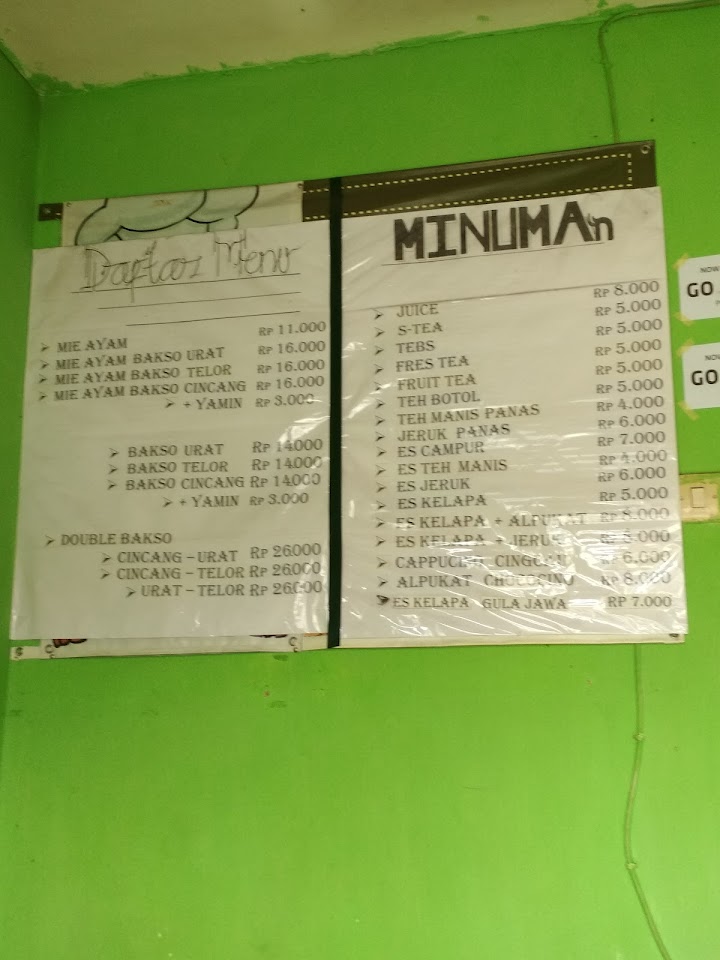 Daftar Menu
➢ MIE AYAM RP 11.000
➢ MIE AYAM BAKSO URAT RP 16.000
➢ MIE AYAM BAKSO TELOR RP 16.000
➢ MIE AYAM BAKSO CINCANG RP 16.000
➢ + YAMIN RP 3.000
➢ BAKSO URAT RP 14.000
➢ BAKSO TELOR RP 14.000
➢ BAKSO CINCANG RP 14.000
➢ + YAMIN RP 3.000
➢ DOUBLE BAKSO
➢ CINCANG – URAT RP 26.000
➢ CINCANG – TELOR RP 26.000
➢ URAT – TELOR RP 26.000
MINUMAn
➢ JUICE RP 8.000
➢ S-TEA RP 5.000
➢ TEBS RP 5.000
➢ FRES TEA RP 5.000
➢ FRUIT TEA RP 5.000
➢ TEH BOTOL RP 5.000
➢ TEH MANIS PANAS RP 4.000
➢ JERUK PANAS RP 6.000
➢ ES CAMPUR RP 7.000
➢ ES TEH MANIS RP 4.000
➢ ES JERUK RP 6.000
➢ ES KELAPA RP 5.000
➢ ES KELAPA + ALPUKAT RP 8.000
➢ ES KELAPA + JERUK RP 8.000
➢ CAPPUCINO CINGCAU RP 6.000
➢ ALPUKAT CHOCOCINO RP 8.000
➢ ES KELAPA GULA JAWA RP 7.000
NOW
GO
NOW
GO